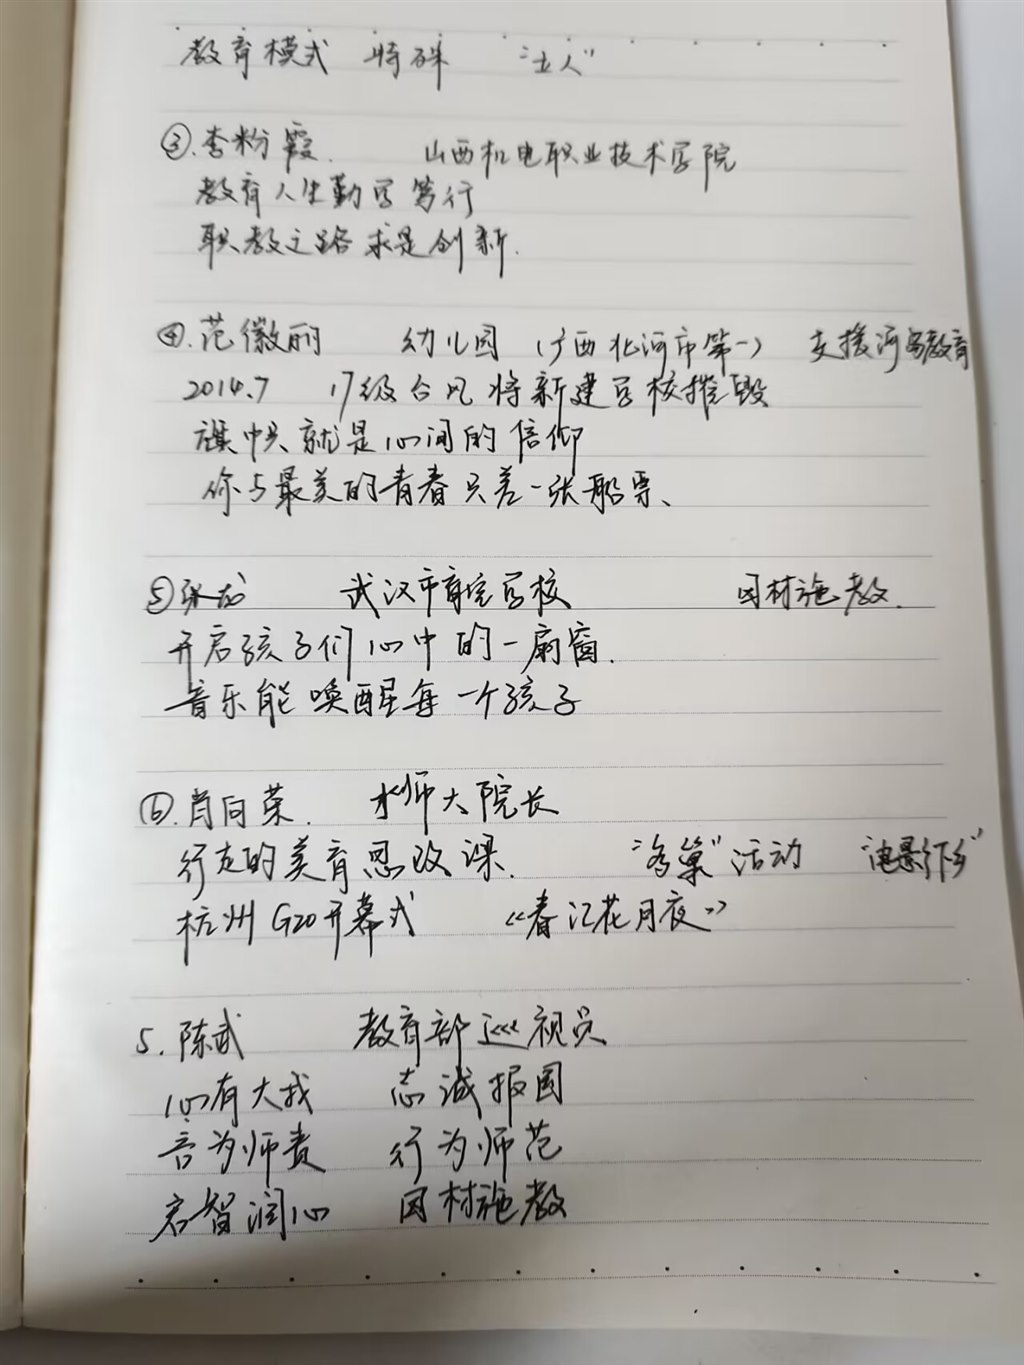 教育模式 特殊 “土人”
③.李粉霞. 山西机电职业技术学院
教育人生勤学笃行
职教之路求是创新.
④.范徽丽 幼儿园(广西北河市第一) 支援河南教育
2014.7 17级台风将新建学校摧毁
旗帜就是心间的信仰
你与最美的青春只差一张船票、
⑤张龙 武汉市盲童学校 因材施教.
开启孩子们心中的一扇窗.
音乐能唤醒每一个孩子
⑥.肖向荣. 北师大院长
行走的美育思政课. “鸟巢”活动 “电影下乡”
杭州G20开幕式 《春江花月夜》
5.陈武 教育部巡视员
心有大我 志诚报国
言为师责 行为师范
启智润心 因材施教